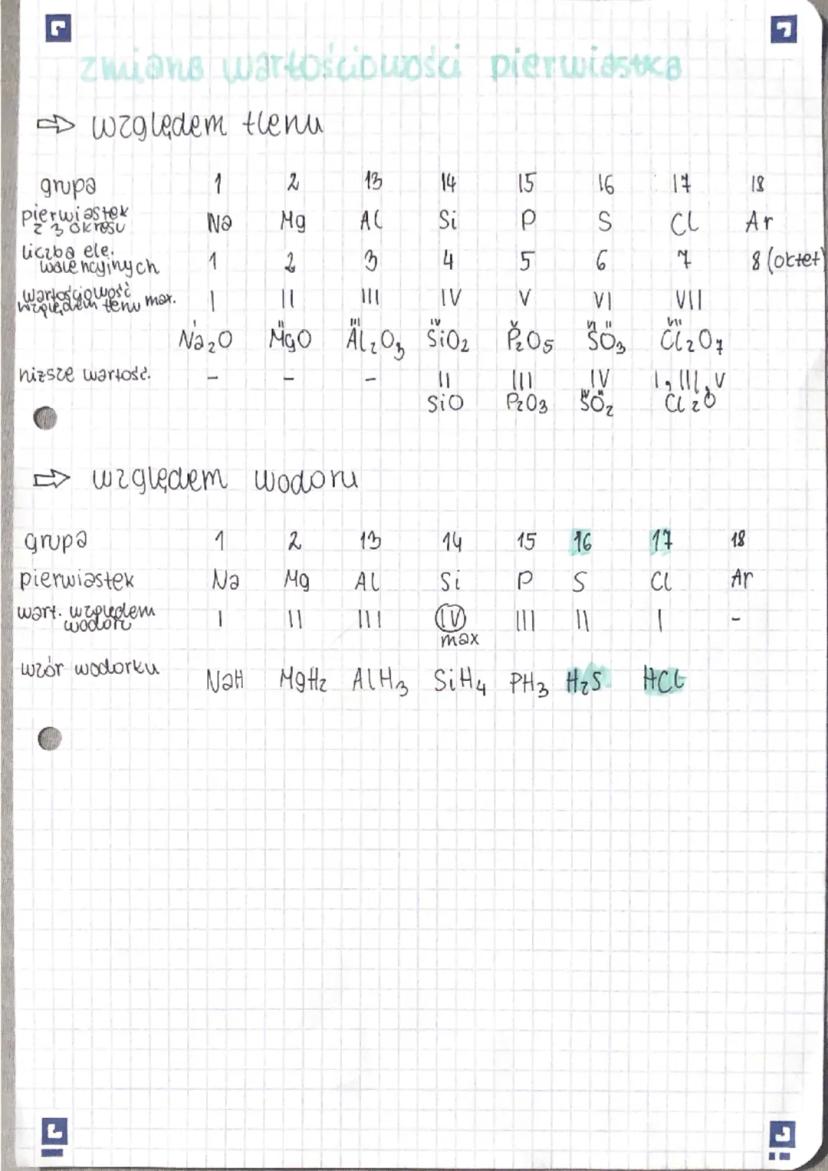 zmiana wartościowości pierwiastka
⇒ względem tlenu
grupa 1 2 13 14 15 16 17 18
pierwiastek z 3 okresu Na Mg Al Si P S Cl Ar
liczba ele. walencyjnych 1 2 3 4 5 6 7 8 (oktet)
wartościowość względem tlenu max. I II III IV V VI VII
Na₂O MgO Al₂O₃ SiO₂ P₂O₅ SO₃ Cl₂O₇
niższe wartość. - - - II III IV I, III, V
SiO P₂O₃ SO₂ Cl₂O
⇒ względem wodoru
grupa 1 2 13 14 15 16 17 18
pierwiastek Na Mg Al Si P S Cl Ar
wart. względem wodoru I II III IV III II I -
max
wzór wodorku NaH MgH₂ AlH₃ SiH₄ PH₃ H₂S HCl